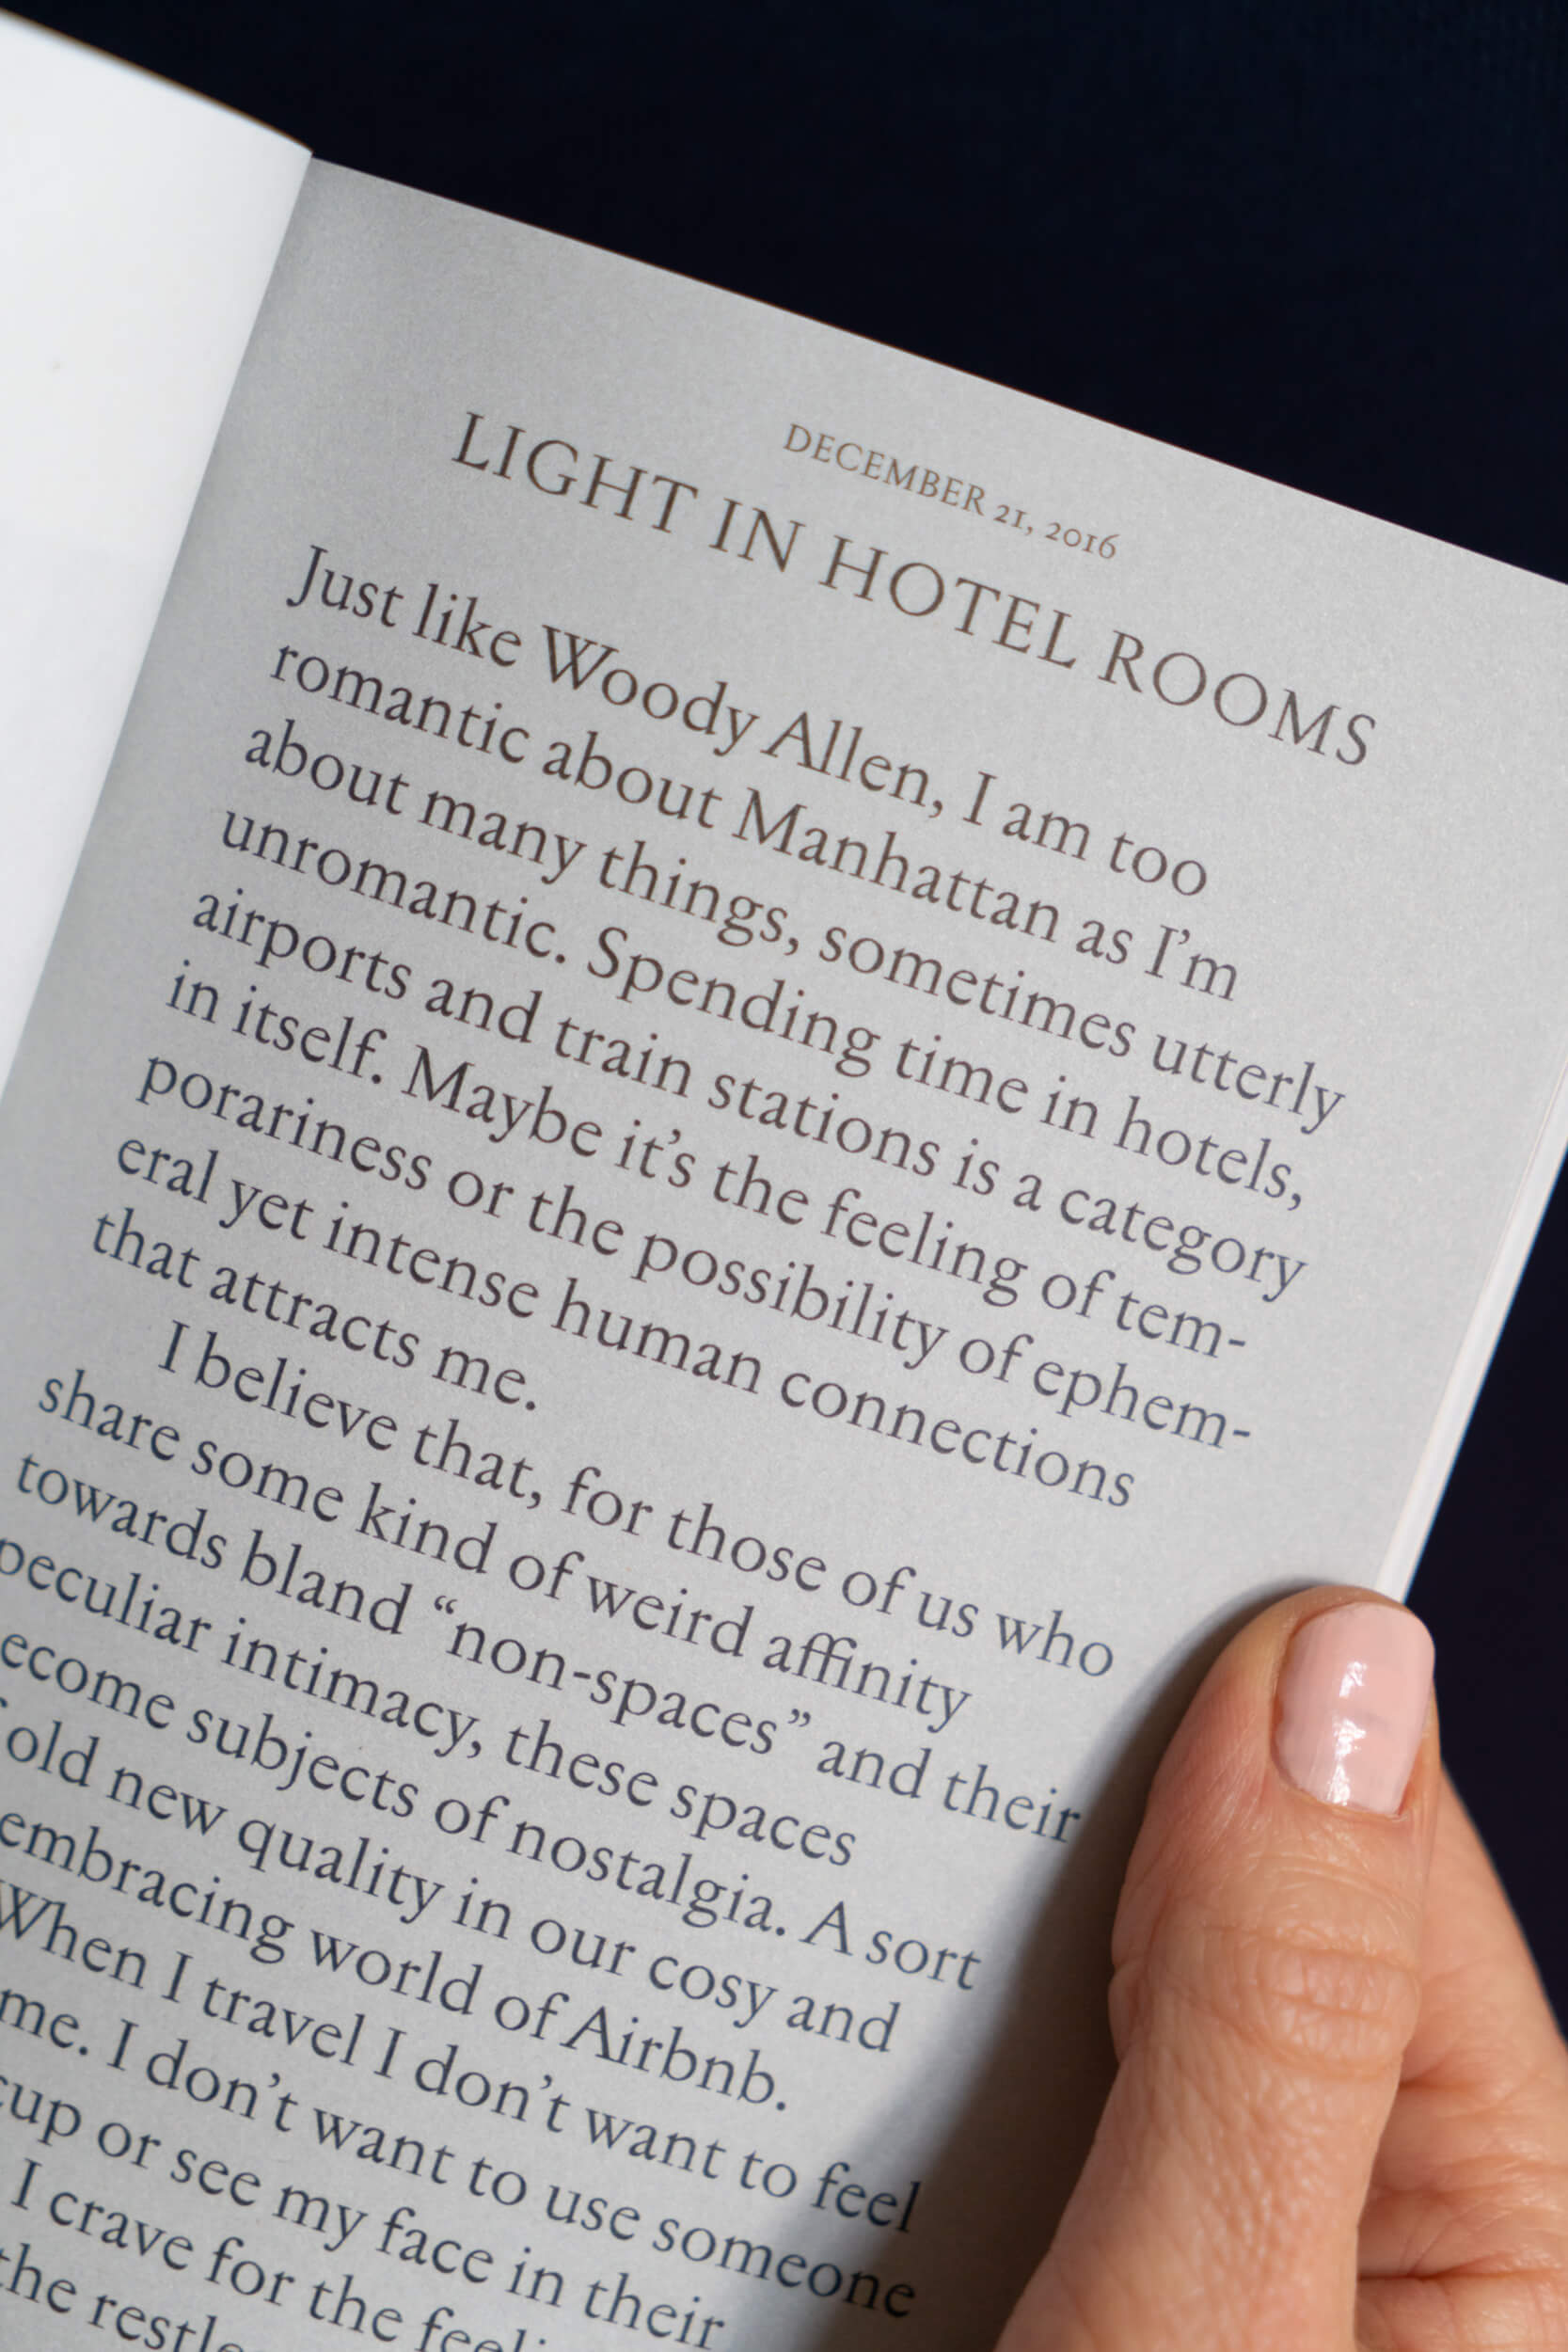 DECEMBER 21, 2016
LIGHT IN HOTEL ROOMS
Just like Woody Allen, I am too
romantic about Manhattan as I’m
about many things, sometimes utterly
unromantic. Spending time in hotels,
airports and train stations is a category
in itself. Maybe it’s the feeling of tem-
porariness or the possibility of ephem-
eral yet intense human connections
that attracts me.
I believe that, for those of us who
share some kind of weird affinity
towards bland “non-spaces” and their
peculiar intimacy, these spaces
ecome subjects of nostalgia. A sort
old new quality in our cosy and
embracing world of Airbnb.
When I travel I don’t want to feel
me. I don’t want to use someone
cup or see my face in their
I crave for the
the